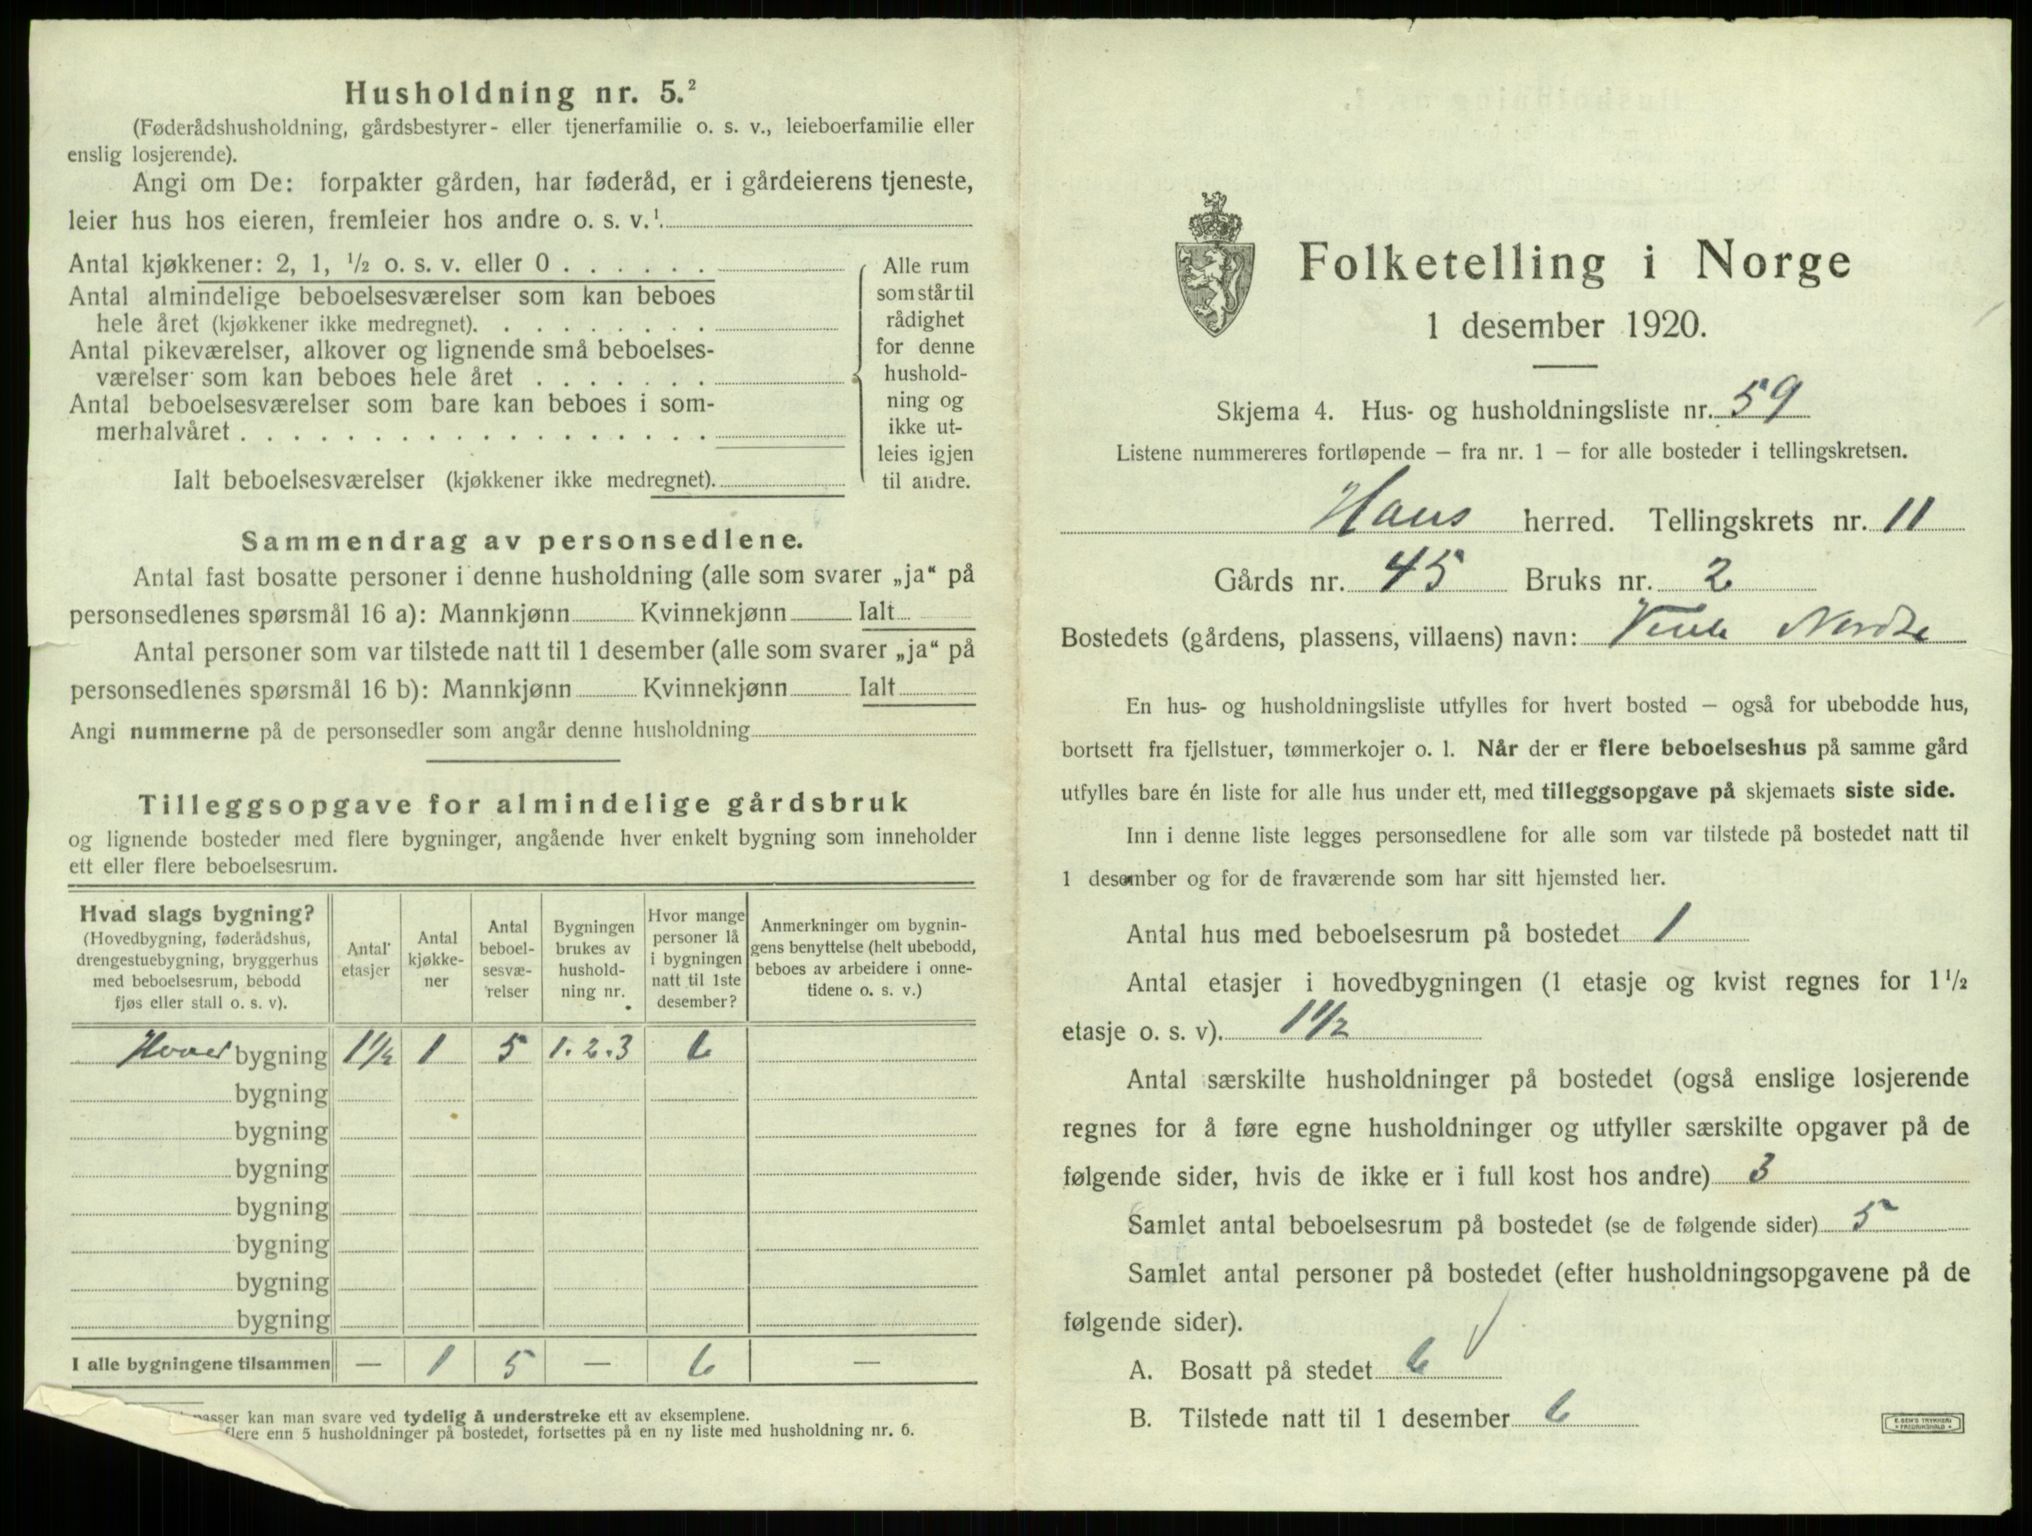 Husholdning nr. 5.²
(Føderådshusholdning, gårdsbestyrer- eller tjenerfamilie o. s. v., leieboerfamilie eller
enslig losjerende).
Angi om De: forpakter gården, har føderåd, er i gårdeierens tjeneste,
leier hus hos eieren, fremleier hos andre o. s. v.¹
Antal kjøkkener: 2, 1, ½ o. s. v. eller 0 . . . . . .
Antal almindelige beboelsesværelser som kan beboes
hele året (kjøkkener ikke medregnet). . . . . . . . .
Antal pikeværelser, alkover og lignende små beboelses-
værelser som kan beboes hele året . . . . . . .
Antal beboelsesværelser som bare kan beboes i som-
merhalvåret . . . . . . . . . . . . . . . . . .
Ialt beboelsesværelser (kjøkkener ikke medregnet).
Alle rum
som står til
rådighet
for denne
hushold-
ning og
ikke ut-
leies igjen
til andre.
Sammendrag av personsedlene.
Antal fast bosatte personer i denne husholdning (alle som svarer „ja“ på
personsedlenes spørsmål 16 a): Mannkjønn Kvinnekjønn Ialt
Antal personer som var tilstede natt til 1 desember (alle som svarer „ja“ på
personsedlenes spørsmål 16 b): Mannkjønn Kvinnekjønn Ialt
Angi nummerne på de personsedler som angår denne husholdning
Tilleggsopgave for almindelige gårdsbruk
og lignende bosteder med flere bygninger, angående hver enkelt bygning som inneholder
ett eller flere beboelsesrum.
Hvad slags bygning?
(Hovedbygning, føderådshus,
drengestuebygning, bryggerhus
med beboelsesrum, bebodd
fjøs eller stall o. s. v).
Antal
etasjer
Antal
kjøkke-
ner
Antal
beboel-
sesvæ-
relser
Bygningen
brukes av
hushold-
ning nr.
Hvor mange
personer lå
i bygningen
natt til 1ste
desember?
Anmerkninger om bygnin-
gens benyttelse (helt ubebodd,
beboes av arbeidere i onne-
tidene o. s. v.)
Hoved bygning 1½ 1 5 1.2.3 6
bygning
bygning
bygning
bygning
bygning
bygning
bygning
I alle bygningene tilsammen — 1 5 — 6 —
passer kan man svare ved tydelig å understreke ett av eksemplene.
flere enn 5 husholdninger på bostedet, fortsettes på en ny liste med husholdning nr. 6.
Folketelling i Norge
1 desember 1920.
Skjema 4. Hus- og husholdningsliste nr. 59
Listene nummereres fortløpende — fra nr. 1 — for alle bosteder i tellingskretsen.
Haus herred. Tellingskrets nr. 11
Gårds nr. 45 Bruks nr. 2
Bostedets (gårdens, plassens, villaens) navn: Nordre
En hus- og husholdningsliste utfylles for hvert bosted — også for ubebodde hus,
bortsett fra fjellstuer, tømmerkojer o. l. Når der er flere beboelseshus på samme gård
utfylles bare én liste for alle hus under ett, med tilleggsopgave på skjemaets siste side.
Inn i denne liste legges personsedlene for alle som var tilstede på bostedet natt til
1 desember og for de fraværende som har sitt hjemsted her.
Antal hus med beboelsesrum på bostedet 1
Antal etasjer i hovedbygningen (1 etasje og kvist regnes for 1½
etasje o. s. v). 1½
Antal særskilte husholdninger på bostedet (også enslige losjerende
regnes for å føre egne husholdninger og utfyller særskilte opgaver på de
følgende sider, hvis de ikke er i full kost hos andre) 3
Samlet antal beboelsesrum på bostedet (se de følgende sider) 5
Samlet antal personer på bostedet (efter husholdningsopgavene på de
følgende sider).
A. Bosatt på stedet 6
B. Tilstede natt til 1 desember 6